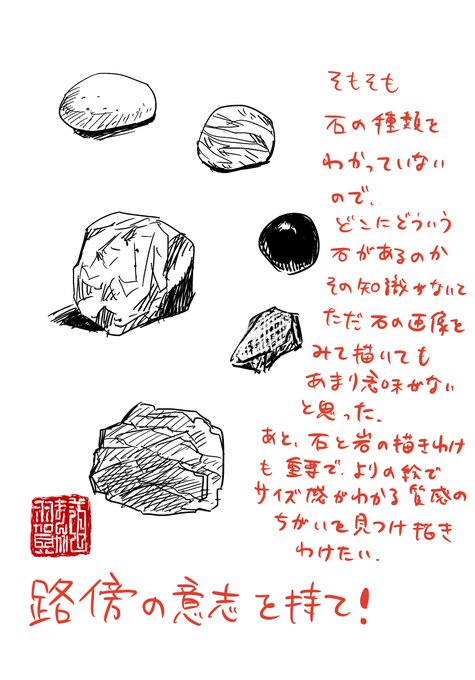 そもそも
石の種類を
わかっていない
ので、
どこにどういう
石があるのか
その知識がないと
ただ石の画像を
みて描いても
あまり意味がない
と思った.
あと、石と岩の描きわけ
も重要で、よりの絵で
サイズ感がわかる質感の
ちがいを見つけ描き
わけたい.
路傍の意志を持て!